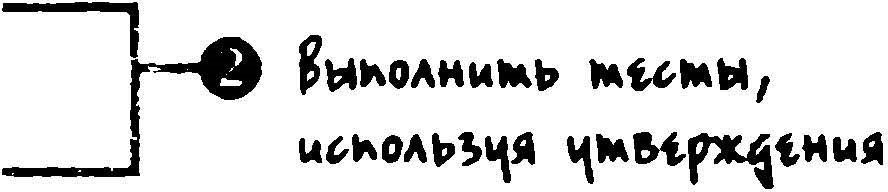 2 Выполнить тесты,
используя утверждения